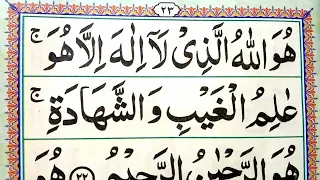 ٢٣
هُوَ اللّٰهُ الَّذِیْ لَاۤ اِلٰهَ اِلَّا هُوَ ۚ
عٰلِمُ الْغَیْبِ وَ الشَّهَادَةِ ۚ
هُوَ الرَّحْمٰنُ الرَّحِیْمُ ﴿٢٢﴾ هُوَ